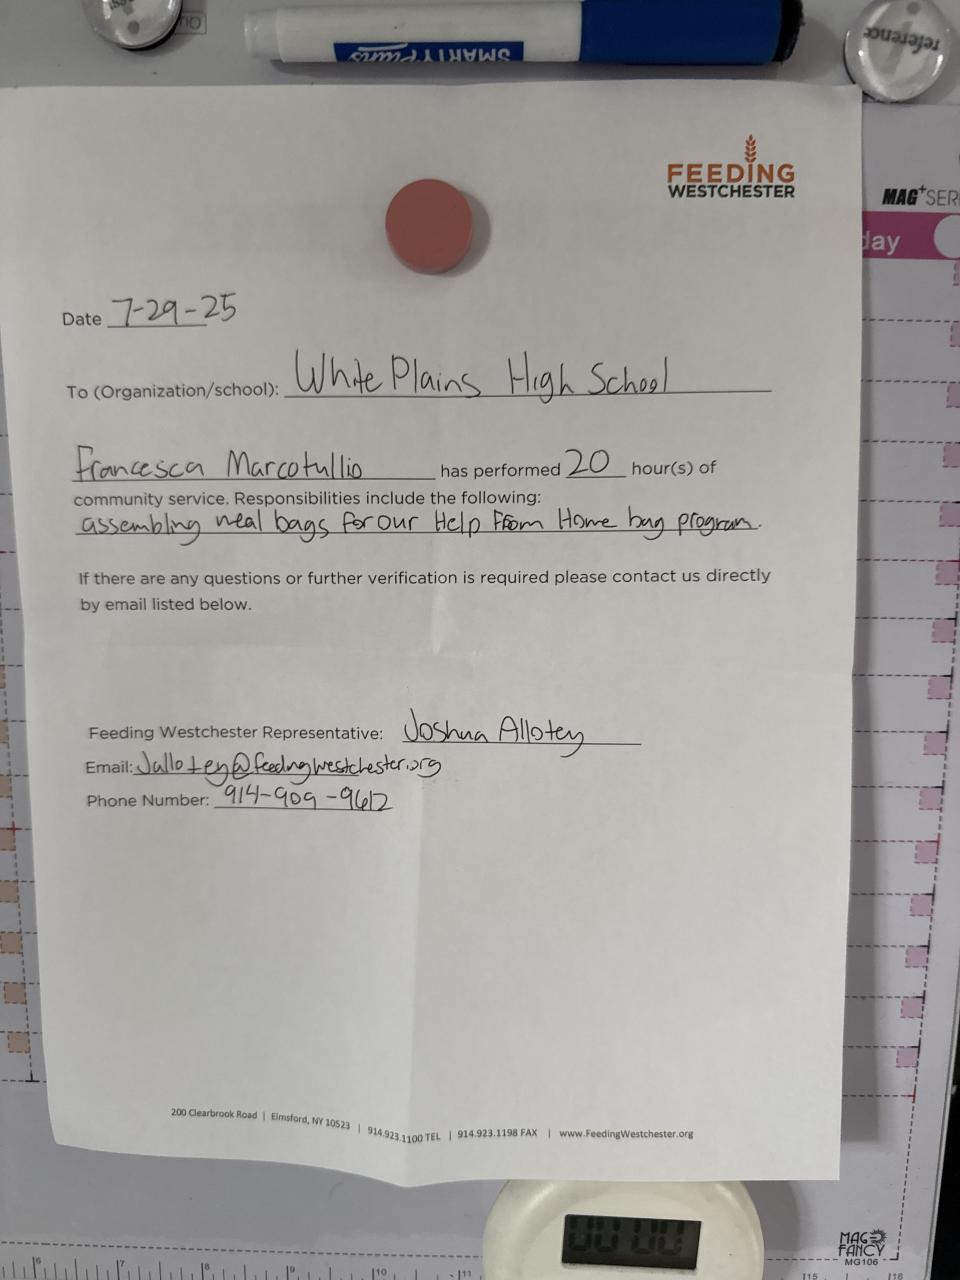 SMARTY Pants
reference
FEEDING
WESTCHESTER
MAG+SERI
day
Date 7-29-25
To (Organization/school): White Plains High School
Francesca Marcotullio has performed 20 hour(s) of
community service. Responsibilities include the following:
assembling meal bags for our Help From Home bag program.
If there are any questions or further verification is required please contact us directly
by email listed below.
Feeding Westchester Representative: Joshua Allotey
Email: Jallotey@feedingwestchester.org
Phone Number: 914-909-9612
200 Clearbrook Road | Elmsford, NY 10523 | 914.923.1100 TEL | 914.923.1198 FAX | www.FeedingWestchester.org
00:00
MAG
FANCY
MG106
6 7 8 9 10 11 115 118